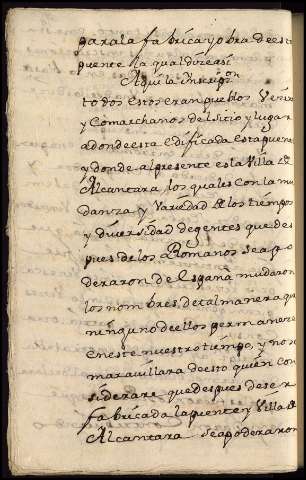 para la fabrica y obra de esta
puente la qual dize asi
Aqui la inscripon
todos estos eran pueblos Vezin
y Comarchanos del sitio y lugar
adonde esta Edificada esta puente
y donde al presente esta la Villa de
Alcantara, los quales con la mu
danza y Variedad de los tiempos
y diversidad de gentes que des
pues de los Romanos se apo
deraron de España mudaron
los nombres de tal manera que
ninguno de ellos permaneze
En este nuestro tiempo, y no se
maravillara de esto quien con
siderare que despues de ser
fabricada la puente y Villa de
Alcantara se apoderaron